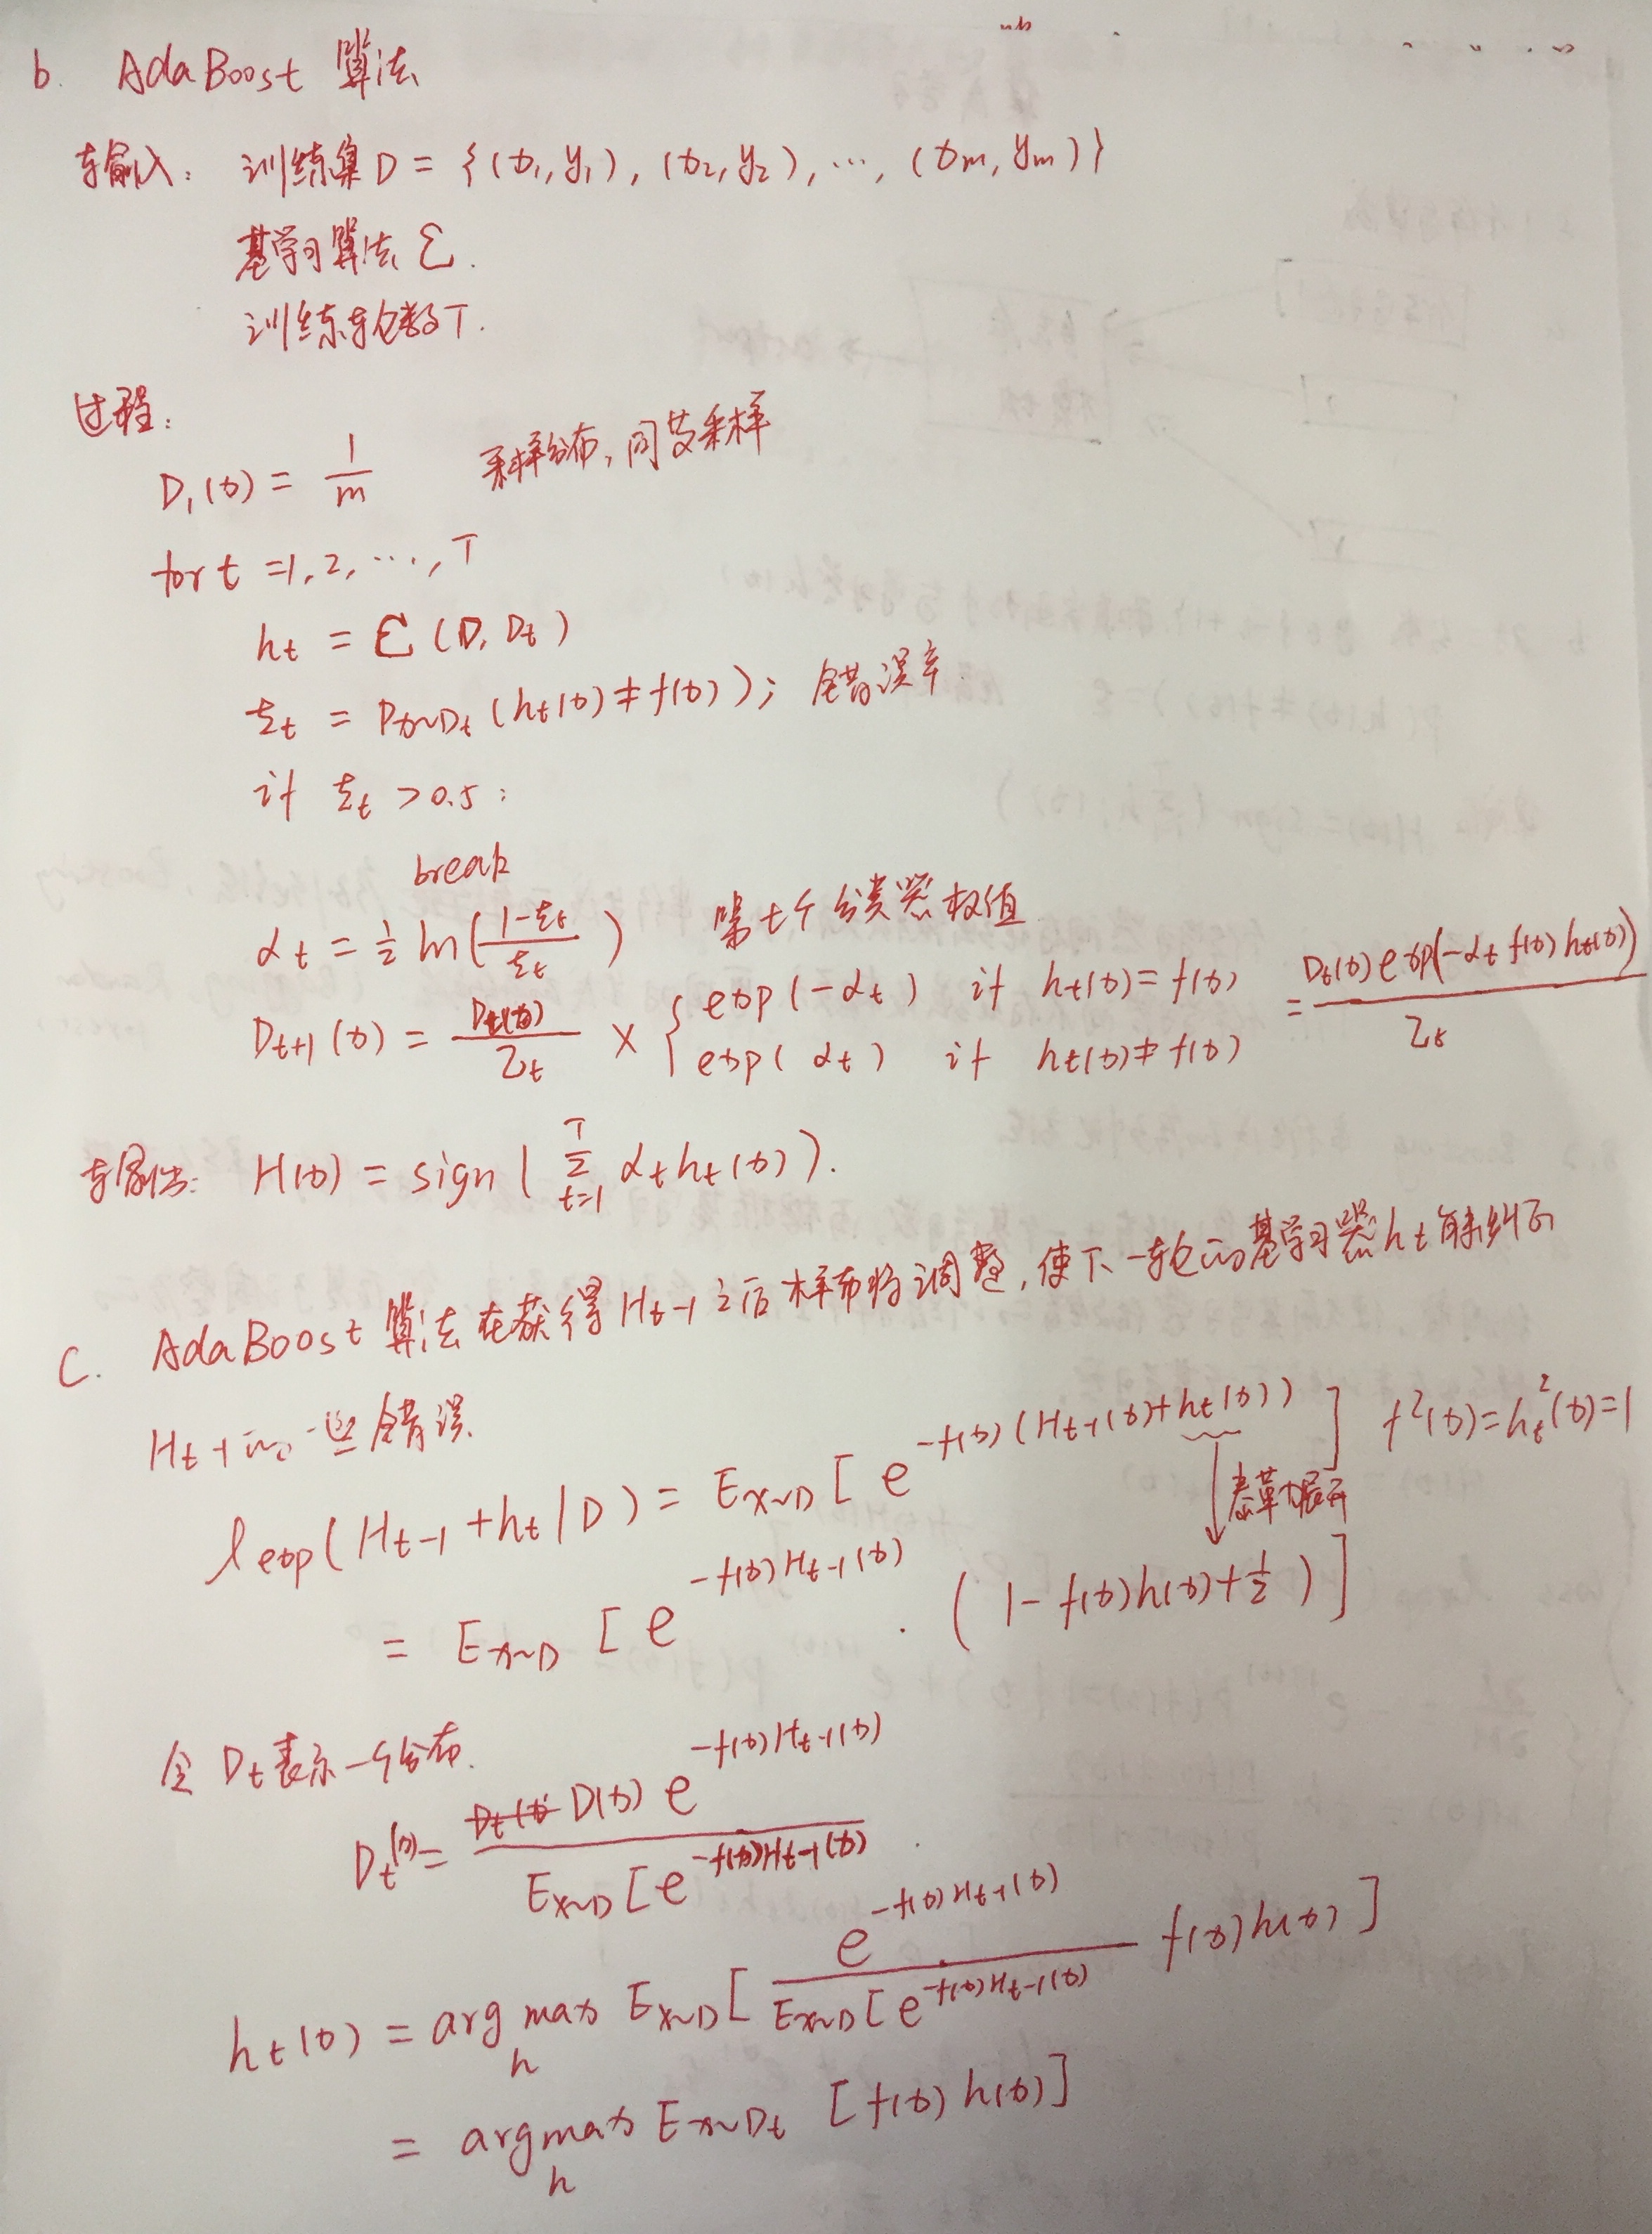 b. AdaBoost 算法
输入: 训练集 D = {(x₁, y₁), (x₂, y₂), ..., (xm, ym)}
基学习算法 ℰ.
训练轮数 T.
过程:
D₁(x) = 1/m 采样分布, 同
for t = 1, 2, ..., T
ht = ℰ(D, Dt)
εt = Px~Dt (ht(x) ≠ f(x)); 错误率
if εt > 0.5:
break
αt = ½ ln((1-εt)/εt) 第t个分类器权值
Dt+1(x) = Dt(x)/Zt × { exp(-αt) if ht(x) = f(x) exp(αt) if ht(x) ≠ f(x) = Dt(x) exp(-αt f(x) ht(x)) / Zt
输出: H(x) = sign(Σ_{t=1}^{T} αt ht(x)).
C. AdaBoost 算法在获得 Ht-1 之后样布将调整, 使下一轮的基学习器 ht 能纠正
Ht-1 的一些错误.
ℓexp(Ht-1 + ht | D) = Ex~D [e^{-f(x)(Ht-1(x)+ht(x))}] f²(x) = ht²(x) = 1
泰勒展开
= Ex~D [e^{-f(x)Ht-1(x)} · (1 - f(x)h(x) + ½)]
令 Dt 表示一个分布.
Dt(x) = D(x) e^{-f(x)Ht-1(x)} / Ex~D [e^{-f(x)Ht-1(x)}
ht(x) = arg max_h Ex~D [e^{-f(x)Ht-1(x)} / Ex~D [e^{-f(x)Ht-1(x)} f(x)h(x)]
= argmax_h Ex~Dt [f(x)h(x)]